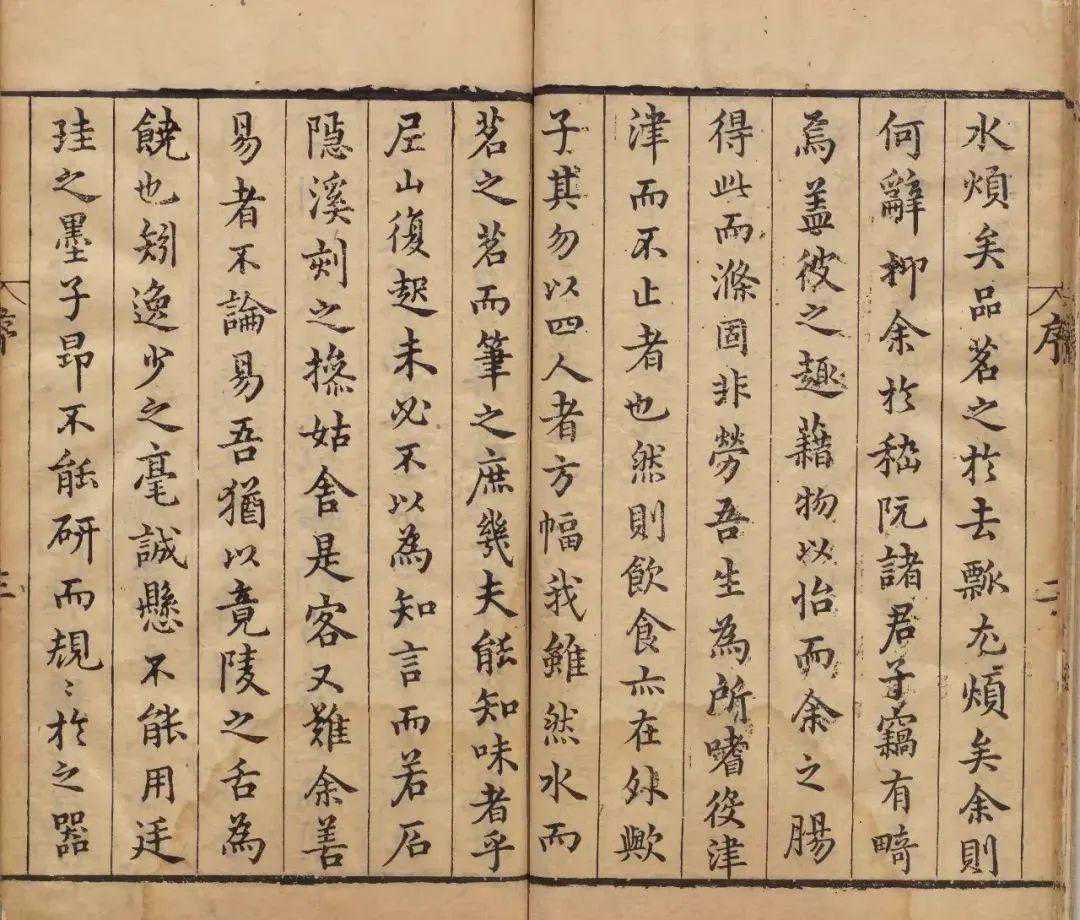 序
二
水煩矣品茗之於去瓢尤煩矣余則
何辭抑余於嵇阮諸君子竊有畸
焉盖彼之趣藉物以怡而余之腸
得此而滌固非勞吾生為所嗜役津
津而不止者也然則飲食亦在外歟
子其勿以四人者方幅我雖然水而
茗之茗而筆之庶幾夫能知味者乎
尼山復起未必不以為知言而若石
隱溪刻之摻姑舍是客又難余善
易者不論易吾猶以竟陵之舌為
饒也矧逸少之毫誠懸不能用廷
珪之墨子昂不能研而規〻於之器